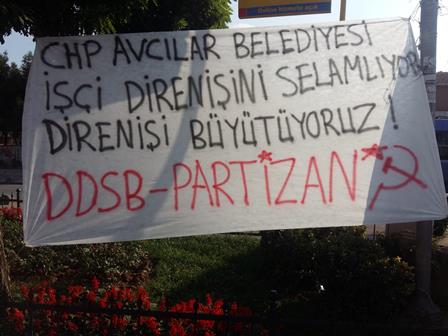 Online hizmete açık
CHP AVCILAR BELEDİYESİ
İŞÇİ DİRENİŞİNİ SELAMLIYOR
DİRENİŞİ BÜYÜTÜYORUZ!
DDSB-PARTİZAN